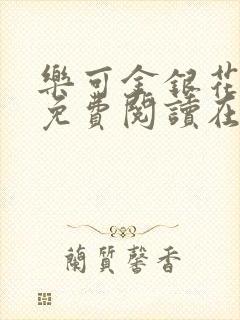 樂可金銀花
免費閱讀在
蘭質馨香